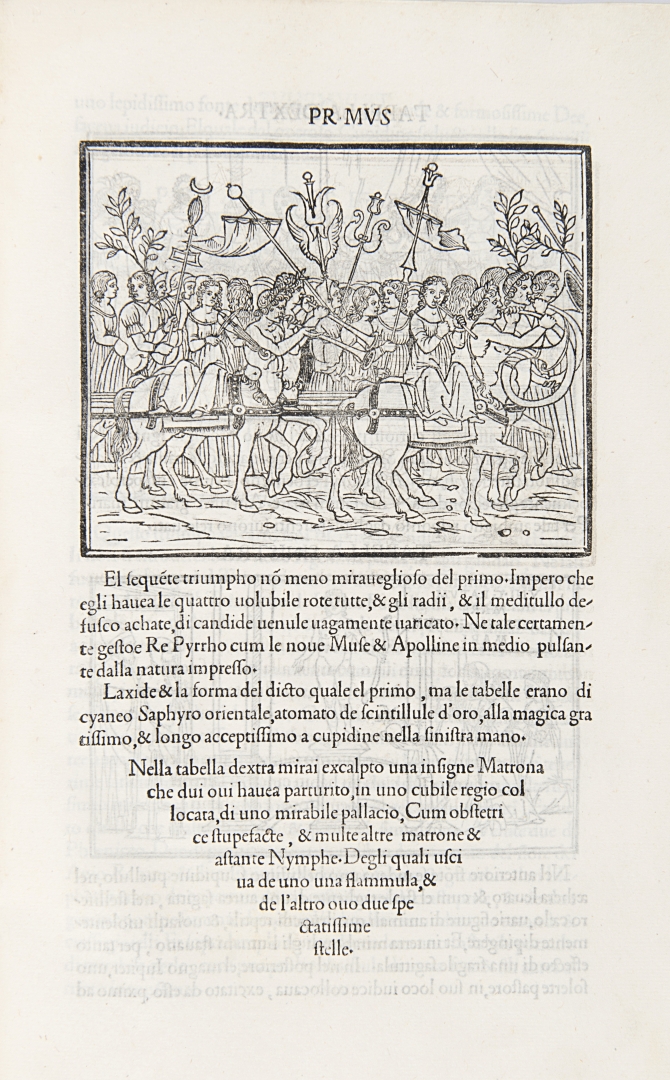 PR·MVS
El sequẽte triumpho nõ meno miraueglioso del primo. Impero che
egli hauea le quattro uolubile rote tutte, & gli radii, & il meditullo de-
fusco achate, di candide uenule uagamente uaricato. Ne tale certamen-
te gestoe Re Pyrrho cum le noue Muse & Apolline in medio pulsan-
te dalla natura impresso.
Laxide & la forma del dicto quale el primo, ma le tabelle erano di
cyaneo Saphyro orientale, atomato de scintillule d'oro, alla magica gra
tissimo, & longo acceptissimo a cupidine nella sinistra mano.
Nella tabella dextra mirai excalpto una insigne Matrona
che dui oui hauea parturito, in uno cubile regio col
locata, di uno mirabile pallacio, Cum obstetri
ce stupefacte, & multe altre matrone &
astante Nymphe. Degli quali usci
ua de uno una flammula, &
de l'altro ouo due spe
ctatissime
stelle.